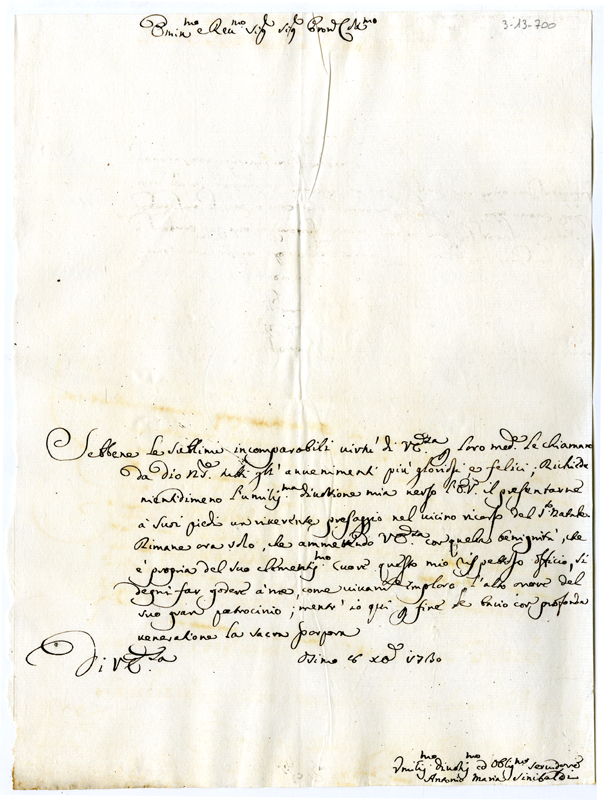 3-13-700
Emin.mo e Rev.mo Sig.r Sig.r Pron Col.mo
Sebbene le sublimi incomparabili virtù di V.Em.za p loro med.e le chiamano
da Dio N.S. tutti gl'avvenimenti più gloriosi e felici, Richiede
nientidimeno l'umiliss.ma divotione mia verso l'E.V. il presentarne
a suoi piedi un riverente presaggio nel vicino ricorso del S.to Natale
Rimane ora solo, che ammettendo V.Em.za con quella benignità, che
è propria del suo clementiss.mo cuore questo mio rispettoso officio, si
degni far godere à me, come vivam.te imploro l'alto onore del
suo gran patrocinio; mentr'io qui p fine le bacio con profonda
veneratione la sacra porpora
Di V.Em.za Osimo xbre 1730
Umiliss.mo divotiss.mo ed Oblig.mo servidore
Antonio Maria Sinibaldi